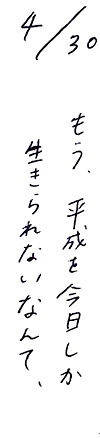 4/30
もう、平成を今日しか
生きられないなんて、